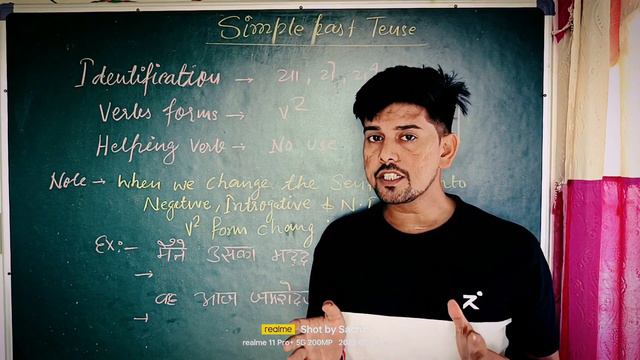 Simple past Tense
Identification → या, ये,
Verbs forms → V²
Helping Verb → No use
Note → When we change the Sen to
Negetive, Introgative & N.I
V² form chang
Ex:- मैंने उसका मदद
→
वह आज
→
realme Shot by Sac
realme 11 Pro+ 5G 200MP 202